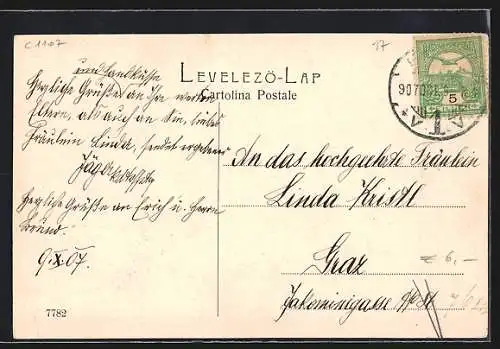 C1107
17
LEVELEZÖ-LAP
Cartolina Postale
5
907
und Handküsse
Herzliche Grüße
an Ihre werten
Eltern, als auch an Sie, liebes
Fräulein Linda, sendet ergebenst
Herzliche Grüße an Erich u. Herrn
Bruno.
9.X.07.
An das hochgeehrte Fräulein
Linda Kristl
Graz
€ 6,-
Jakominigasse
7782